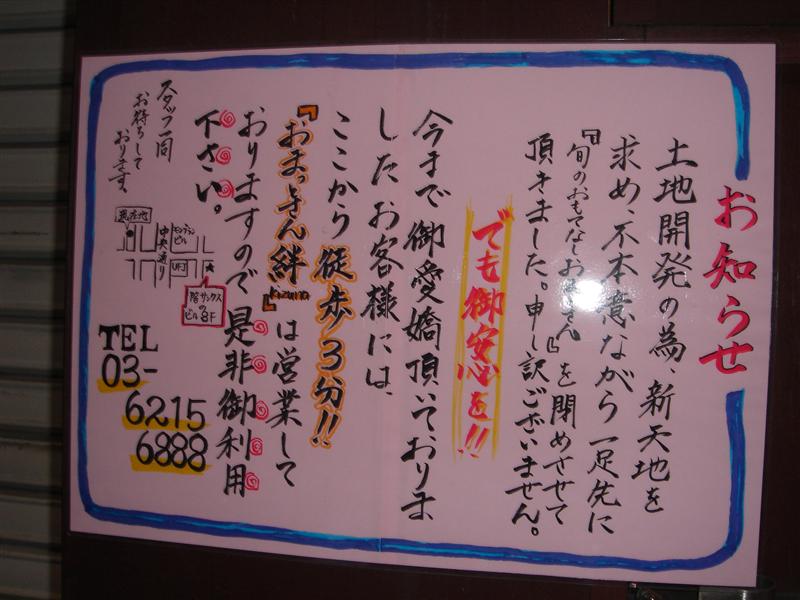 お知らせ
土地開発の為、新天地を
求め、不本意ながら一足先に
『旬のおもてなしおまっきん』を閉めさせて
頂きました。申し訳ございません。
でも御安心を!!
今まで御愛嬌頂いておりま
したお客様には、
ここから徒歩3分!!
『おまっきん絆』は営業して
kizuna
おりますので是非御利用
下さい。
スタッフ一同
お待ちして
おります。
現在地
中央通り
モンブラン
ビル
UFJ
階サックスの
ビル8F
TEL
03-
6215
6888